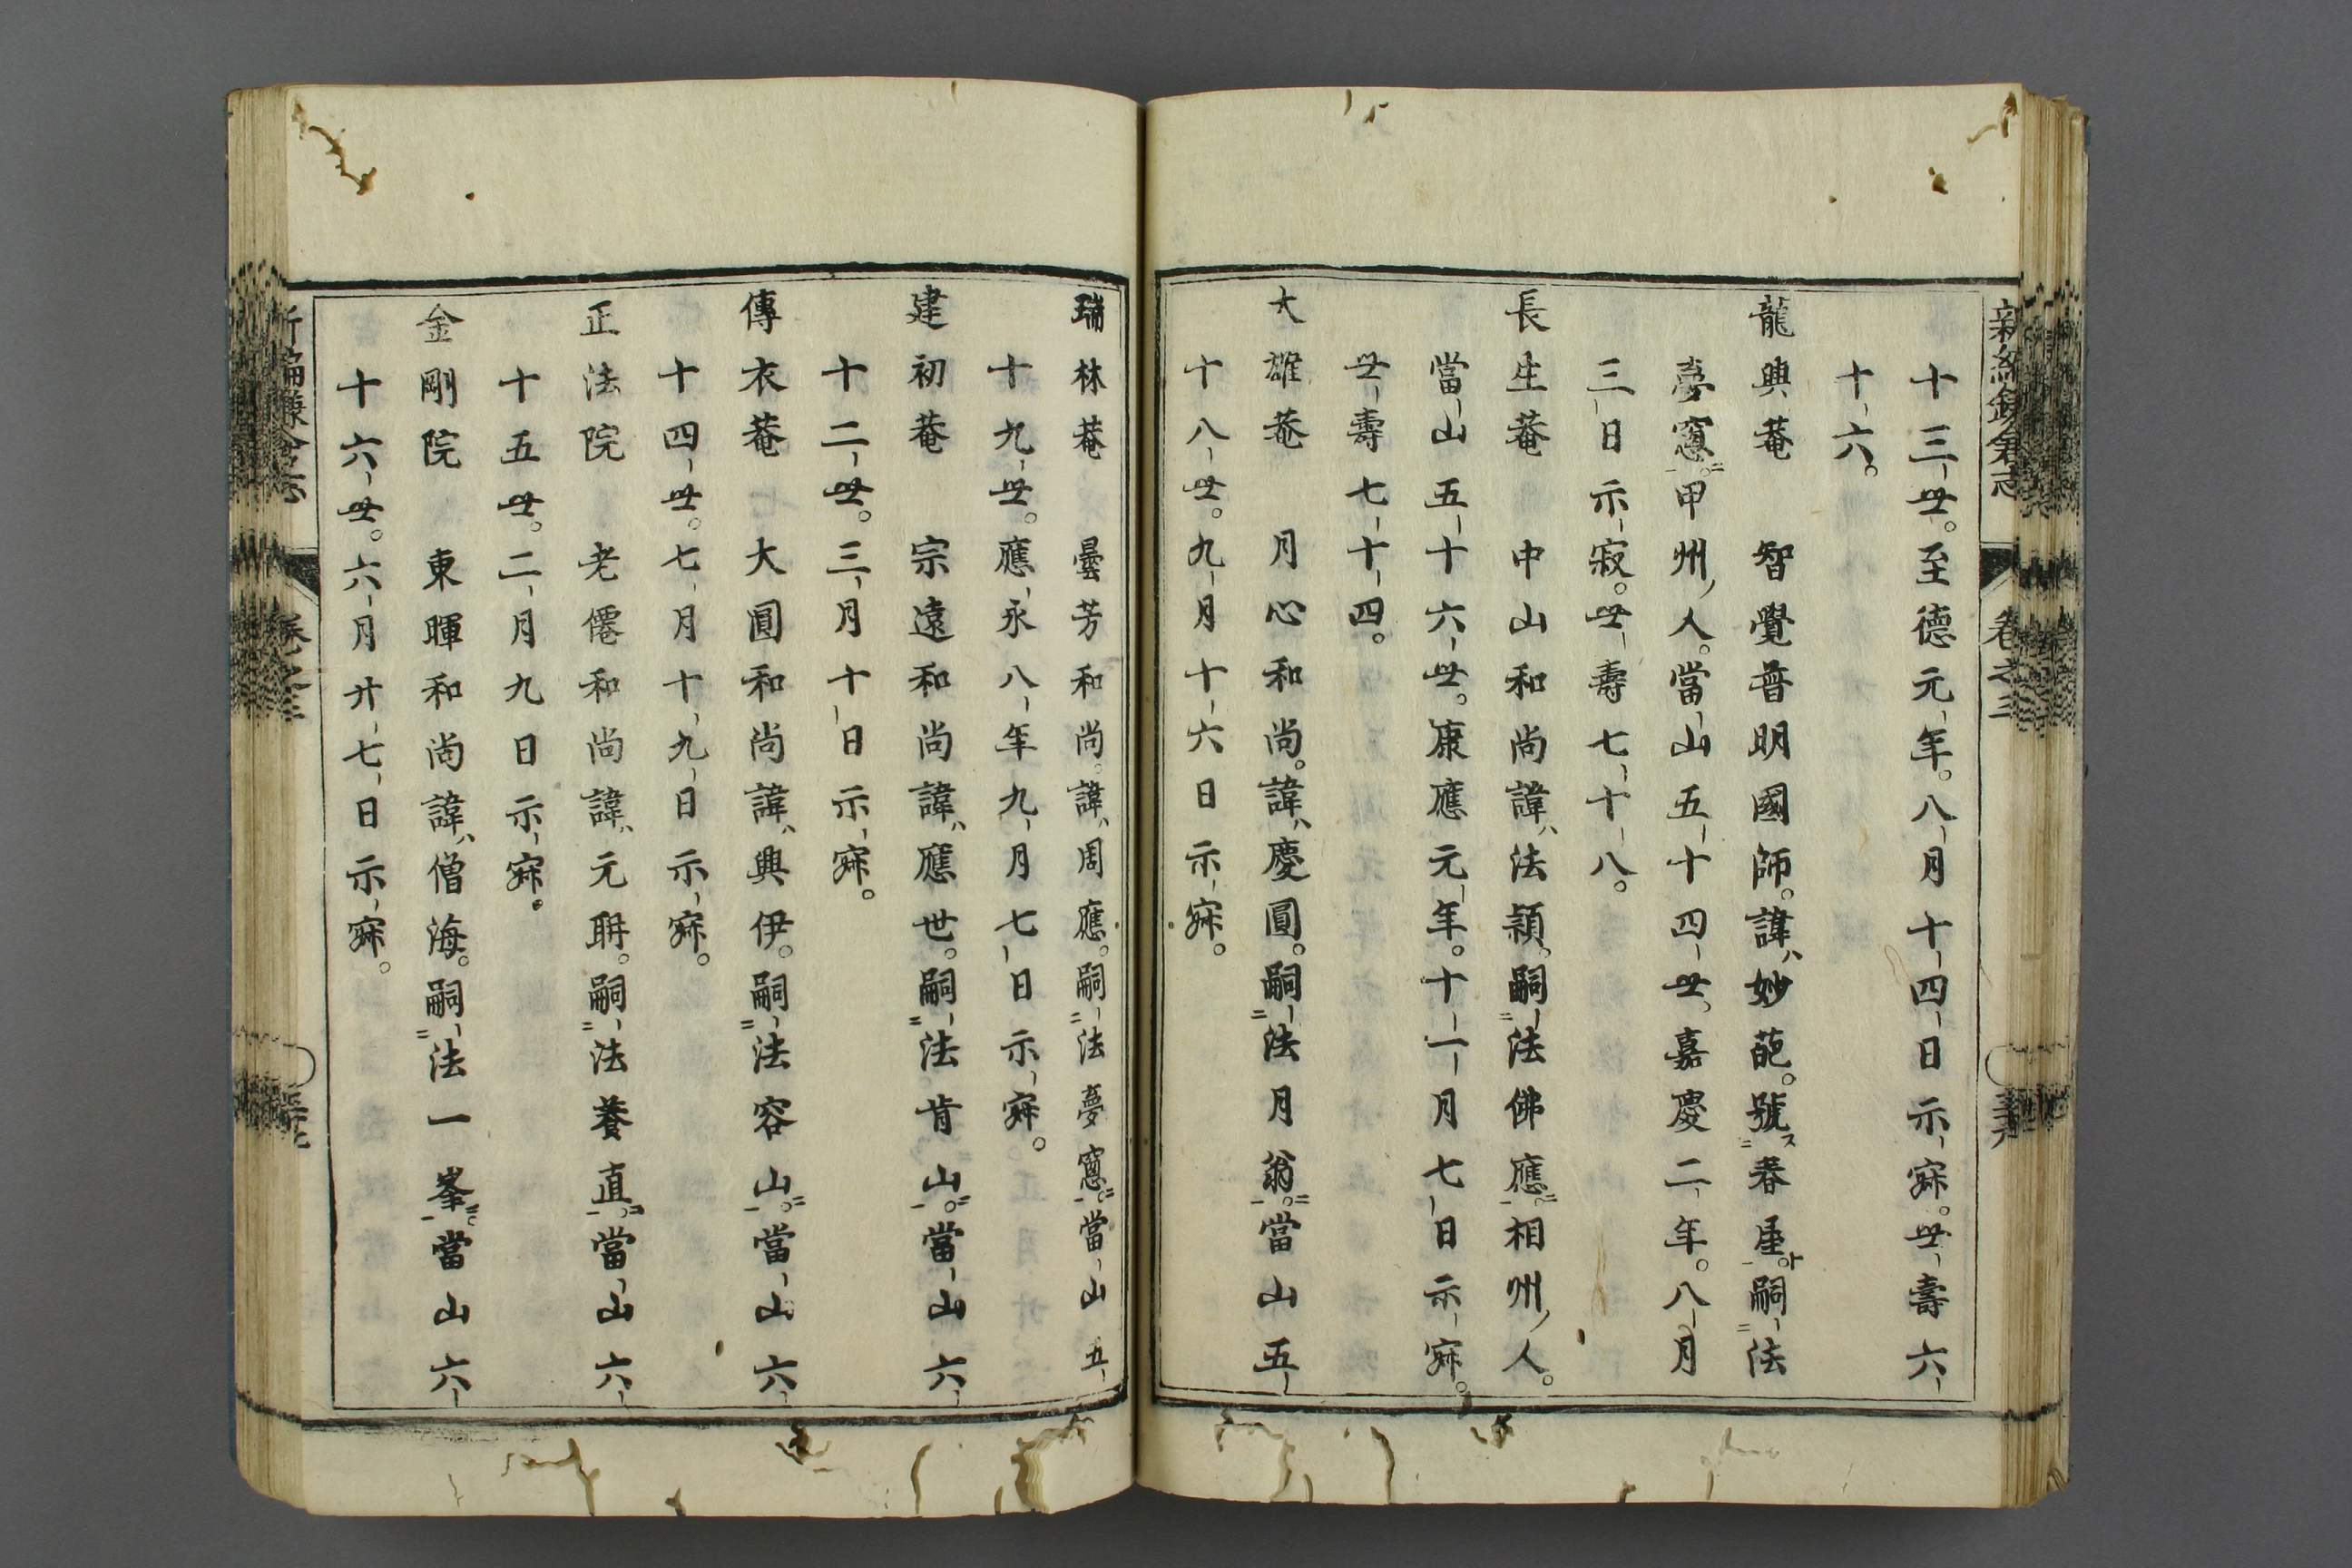 新編鎌倉志 卷之三
十三世。至德元年。八月十四日示寂。世壽六
十六。
龍興菴 智覺普明國師。諱ハ妙葩。號ス春屋ト。嗣法
夢窓。甲州ノ人。當山五十四世。嘉慶二年。八月
三日示寂。世壽七十八。
長生菴 中山和尚諱ハ法頴。嗣法佛應。相州ノ人。
當山五十六世。康應元年。十一月七日示寂。
世壽七十四。
大雄菴 月心和尚。諱ハ慶圓。嗣法月翁。當山五
十八世。九月十六日示寂。
瑞林菴 曇芳和尚。諱ハ周應。嗣法夢窓。當山五
十九世。應永八年九月七日示寂。
建初菴 宗遠和尚諱ハ應世。嗣法肯山。當山六
十二世。三月十日示寂。
傳衣菴 大圓和尚諱ハ興伊。嗣法容山。當山六
十四世。七月十九日示寂。
正法院 老僊和尚諱ハ元聃。嗣法養直。當山六
十五世。二月九日示寂。
金剛院 東暉和尚諱ハ僧海。嗣法一峯。當山六
十六世。六月廿七日示寂。
新編鎌倉志 卷之三